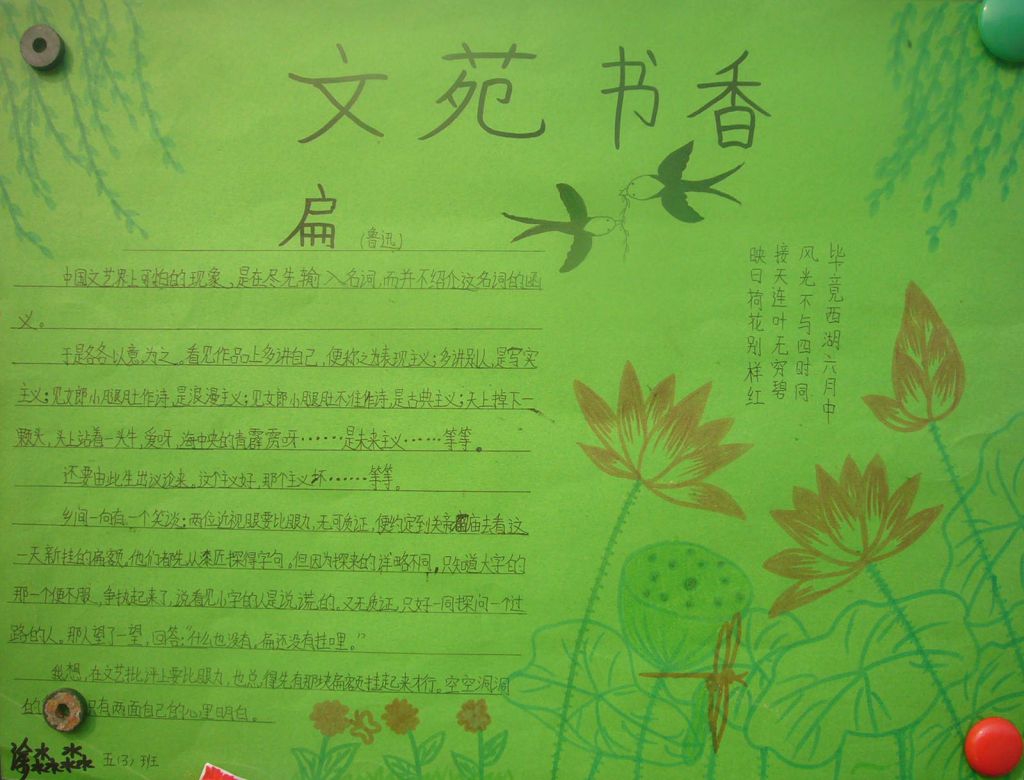 文苑书香
扁
(鲁迅)
中国文艺界上可怕的现象,是在尽先输入名词,而并不绍介这名词的函
义。
于是各各以意为之。看见作品上多讲自己,便称之为表现主义;多讲别人,是写实
主义;见女郎小腿肚作诗,是浪漫主义;见女郎小腿肚不准作诗,是古典主义;天上掉下一
颗头,头上站着一头牛,爱呀,海中央的青霹雳呀……是未来主义……等等。
还要由此生出议论来。这个主义好,那个主义坏……等等。
乡间一向有一个笑谈:两位近视眼要比眼力,无可质证,便约定到关帝庙去看这
一天新挂的扁额。他们都先从漆匠探得字句。但因为探来的详略不同,只知道大字的
那一个便不服,争执起来了,说看见小字的人是说谎的。又无质证,只好一同探问一个过
路的人。那人望了一望,回答:“什么也没有。扁还没有挂哩。”
我想,在文艺批评上要比眼力,也总得先有那块扁额挂起来才行。空空洞洞
的只有两面自己的心里明白。
毕竟西湖六月中
风光不与四时同
接天连叶无穷碧
映日荷花别样红
涂淼淼 五(3)班